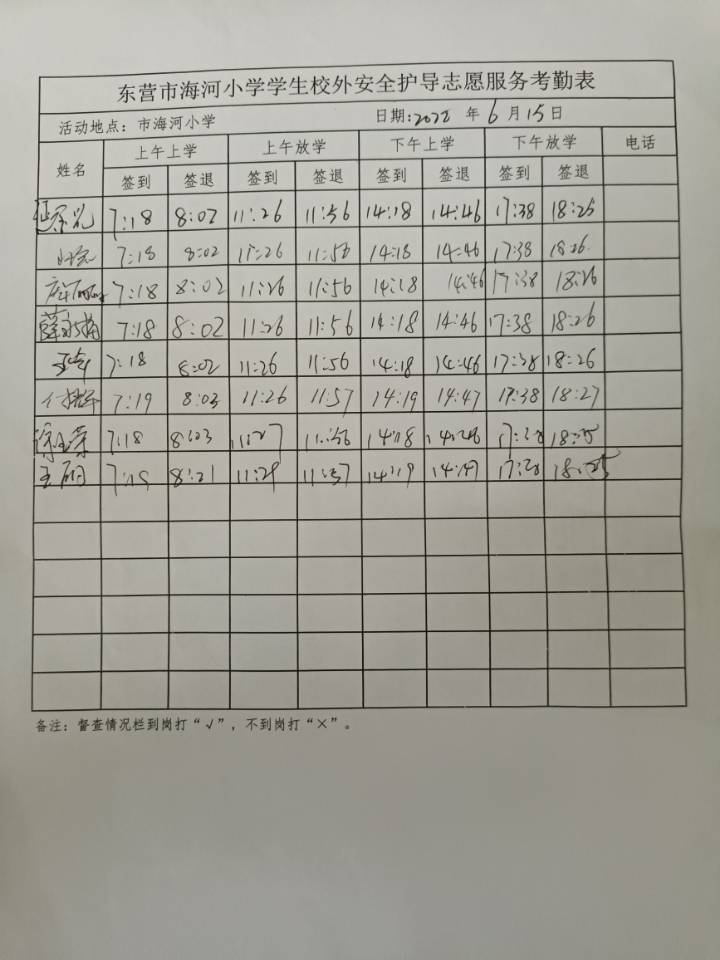 东营市海河小学学生校外安全护导志愿服务考勤表
活动地点：市海河小学 日期:2022 年 6 月 15 日
姓名 上午上学 上午放学 下午上学 下午放学 电话
签到 签退 签到 签退 签到 签退 签到 签退
7:18 8:02 11:26 11:56 14:18 14:46 17:38 18:25
7:18 8:02 11:26 11:56 14:18 14:46 17:38 18:26
7:18 8:02 11:26 11:56 14:18 14:46 17:38 18:26
7:18 8:02 11:26 11:56 14:18 14:46 17:38 18:26
7:18 8:02 11:26 11:56 14:18 14:46 17:38 18:26
7:19 8:03 11:26 11:57 14:19 14:47 17:38 18:27
7:18 8:03 11:27 11:56 14:18
王 8:21 11:29 11:57 14:19 14:47
备注：督查情况栏到岗打“√”，不到岗打“×”。